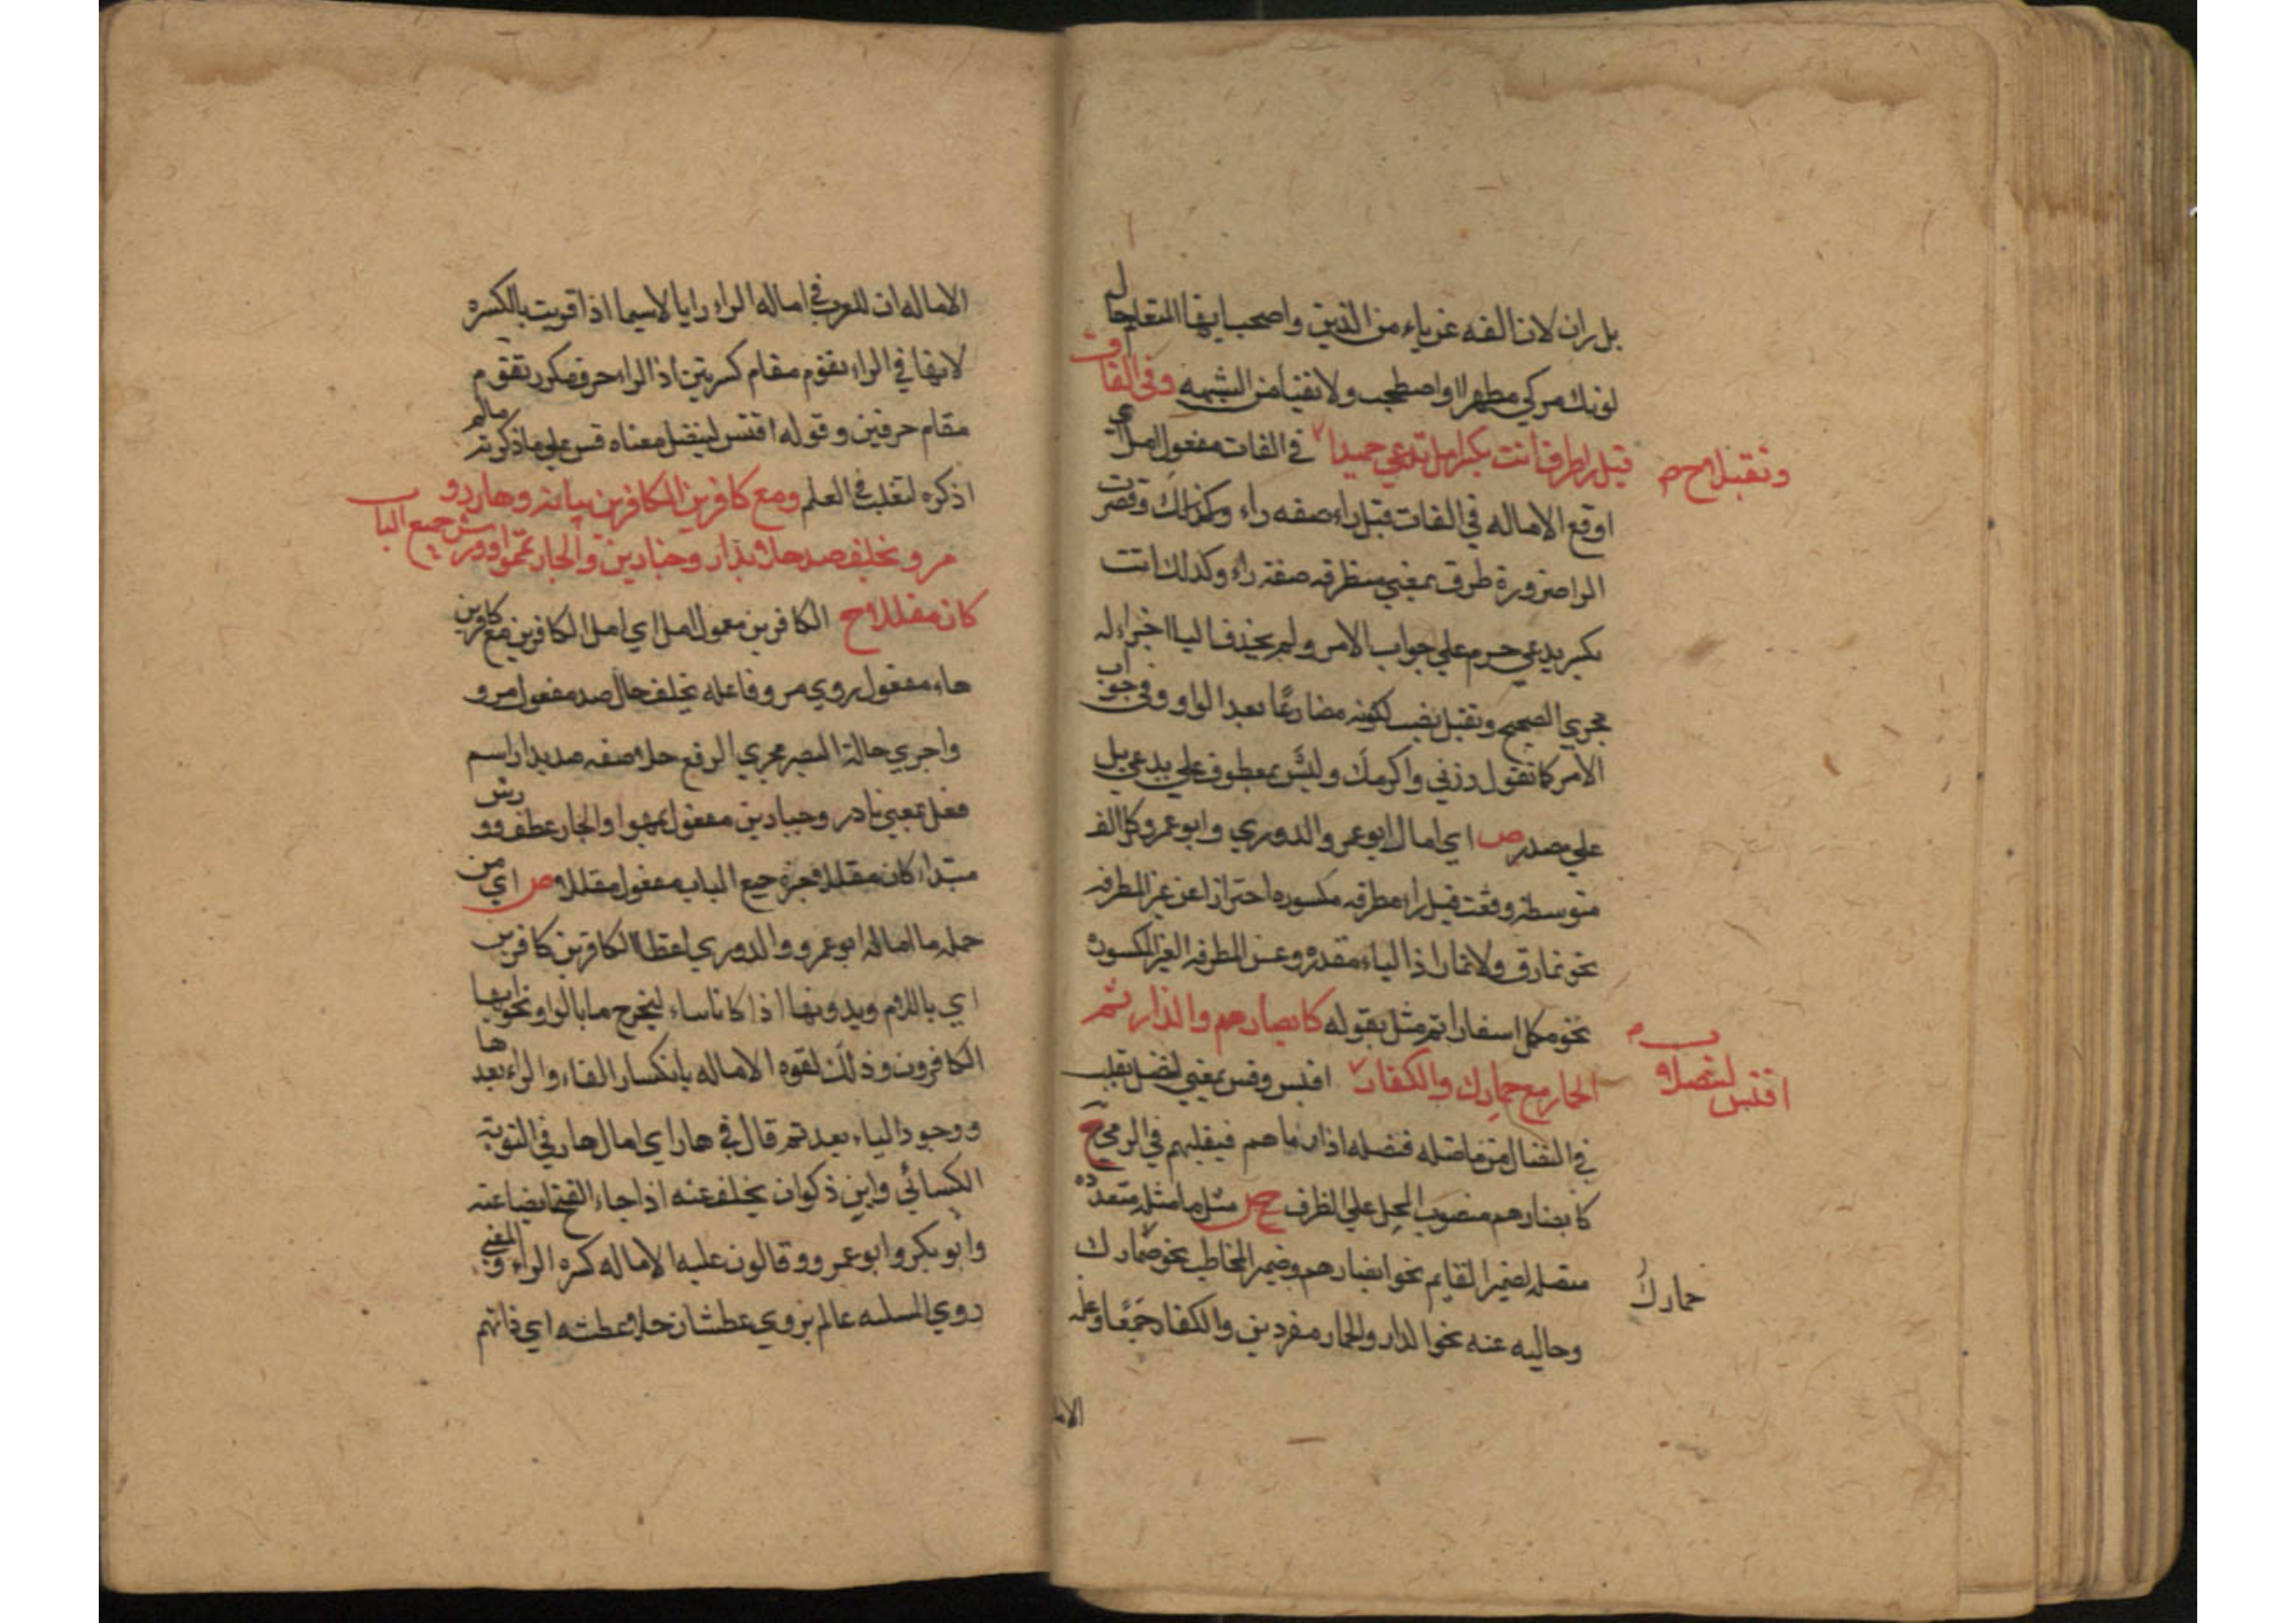 بل ران لان الفه عن ياء من الذين واصحب ايها المتعلم حال
لونك مركي مطهرا واصطحب ولا تفتيا من الشبهه وفي الفات
قبل را طرف اتت بكسر امل تدعي حميدا في الفات مفعول امل اي
وتقبلا ح م
اوقع الاماله في الفات قبل راء صفه راء وكذلك وقصرت
الرا ضرورة طرف بمعني متطرفه صفة راء وكذلك اتت
بكسر يدعي جزم علي جواب الامر ولم يحذف اليا اجراء له
مجري الصحيح وتقبل نصب لكونه مضارعا بعد الواو وفي جواب
الامر كما تقول زرني واكرمك وليس بمعطوف علي يدعي بل
علي مصدر ص اي امال ابو عمر والدوري وابو عمرو كل الف
متوسطة وقعت قبل راء مطرفه مكسوره احترازا عن غير المطرفه
نحو نمارق ولا تمار اذ الياء مقدرة وعن المطرفه الغير المكسوره
نحو مكل اسفارا ثم مثل بقوله كابصارهم والدار ثم
الحمار مع حمارك والكفار افتس وقس بمعني لنضل نغلب
اقتس لتنضلا و
في النضال من ناضله فنضله اذا راماهم فيغلبهم في الرمي ح
كابصارهم منصوب المحل علي الظرف ح ص مثل ما مثل متعدده
متصله لضمير الغايم نحو ابصارهم وضمير المخاطب نحو حمارك
حمارك
وحاليه عنه نحو الدار والحمار مفردين والكفار جمعا وعله
الاما
الاماله ان للعرب في اماله الراء رايا لاسيما اذا قويت بالكسره
لانها في الراء تقوم مقام كسرتين اذ الراء حرف مكرر تقوم
مقام حرفين وقوله اقتس لينضل معناه قس علي ما ذكرته مالم
اذكره لتغلب في العلم ومع كافرين الكافرين بيائه وهار روي
مرو بخلف صد حلا بدار وجبارين والجار تمموا وورش جميع الباب
كان مقللا ح الكافرين معمول امل اي امل الكافرين مع كافرين
هاء مفعول روي مرو فاعله بخلف حال صد مفعول مرو
واجري حالة النصب مجري الرفع حلا صفه صد بدار اسم
فعل بمعني بادر وجبارين مفعول تمموا والجار عطف وورش
مبتداء كان مقللا خبره جميع الباب مفعول مقللا ص اي من
جمله ما اماله ابو عمرو والدوري لفظا الكافرين كافرين
اي باللام وبدونها اذا كانا بياء ليخرج ما بالواو نحو ايها
الكافرون وذلك لقوه الاماله بانكسار الفاء والراء بعدها
ووجود الياء بعد ثم قال في هار اي امال هار في التوبة
الكسائي وابن ذكوان بخلف عنه اذ اجاء الفتح ايضا عنه
وابو بكر وابو عمرو وقالون عليه الاماله كسره الراء والمعني
روي المسلسه عالم يروي عطشان حلا وعطشه اي فاتهم